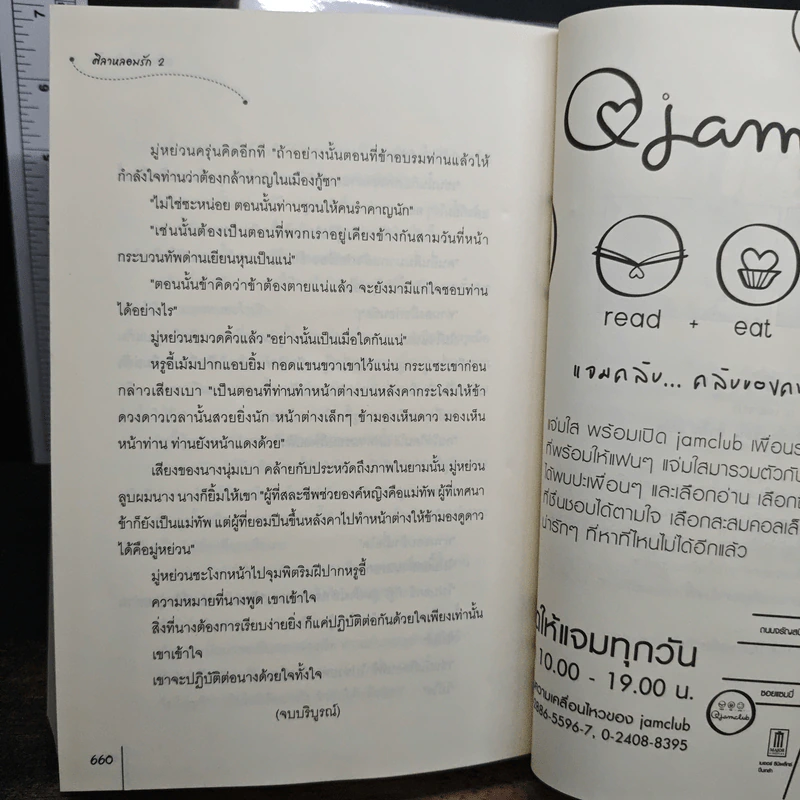 ศิลาหลอมรัก 2
มู่หย่วนครุ่นคิดอีกที "ถ้าอย่างนั้นตอนที่ข้าอบรมท่านแล้วให้
กำลังใจท่านว่าต้องกล้าหาญในเมืองกู้ซา"
"ไม่ใช่ซะหน่อย ตอนนั้นท่านชวนให้คนรำคาญนัก"
"เช่นนั้นต้องเป็นตอนที่พวกเราอยู่เคียงข้างกันสามวันที่หน้า
กระบวนทัพด่านเยียนหุนเป็นแน่"
"ตอนนั้นข้าคิดว่าข้าต้องตายแน่แล้ว จะยังมามีแก่ใจชอบท่าน
ได้อย่างไร"
มู่หย่วนขมวดคิ้วแล้ว "อย่างนั้นเป็นเมื่อใดกันแน่"
หรูอี้เม้มปากแอบยิ้ม กอดแขนขวาเขาไว้แน่น กระแซะเขาก่อน
กล่าวเสียงเบา "เป็นตอนที่ท่านทำหน้าต่างบนหลังคากระโจมให้ข้า
ดวงดาวเวลานั้นสวยยิ่งนัก หน้าต่างเล็กๆ ข้ามองเห็นดาว มองเห็น
หน้าท่าน ท่านยังหน้าแดงด้วย"
เสียงของนางนุ่มเบา คล้ายกับประหวัดถึงภาพในยามนั้น มู่หย่วน
ลูบผมนาง นางก็ยิ้มให้เขา "ผู้ที่สละชีพช่วยองค์หญิงคือแม่ทัพ ผู้ที่เทศนา
ข้าก็ยังเป็นแม่ทัพ แต่ผู้ที่ยอมปีนขึ้นหลังคาไปทำหน้าต่างให้ข้ามองดูดาว
ได้คือมู่หย่วน"
มู่หย่วนชะโงกหน้าไปจุมพิตริมฝีปากหรูอี้
ความหมายที่นางพูด เขาเข้าใจ
สิ่งที่นางต้องการเรียบง่ายยิ่ง ก็แค่ปฏิบัติต่อกันด้วยใจเพียงเท่านั้น
เขาเข้าใจ
เขาจะปฏิบัติต่อนางด้วยใจทั้งใจ
(จบบริบูรณ์)
660
jam
read + eat
แจมคลับ... คลับของค
แจ่มใส พร้อมเปิด jamclub เพื่อน
ที่พร้อมให้แฟนๆ แจ่มใสมารวมตัวกัน
ได้พบปะเพื่อนๆ และเลือกอ่าน เลือก
ที่ชื่นชอบได้ตามใจ เลือกสะสมคอลเล็
น่ารักๆ ที่หาที่ไหนไม่ได้อีกแล้ว
ให้แจมทุกวัน
10.00 - 19.00 น.
ความเคลื่อนไหวของ jamclub
0886-5596-7, 0-2408-8395
jamclub
ซอยแซมมี่
MAJOR